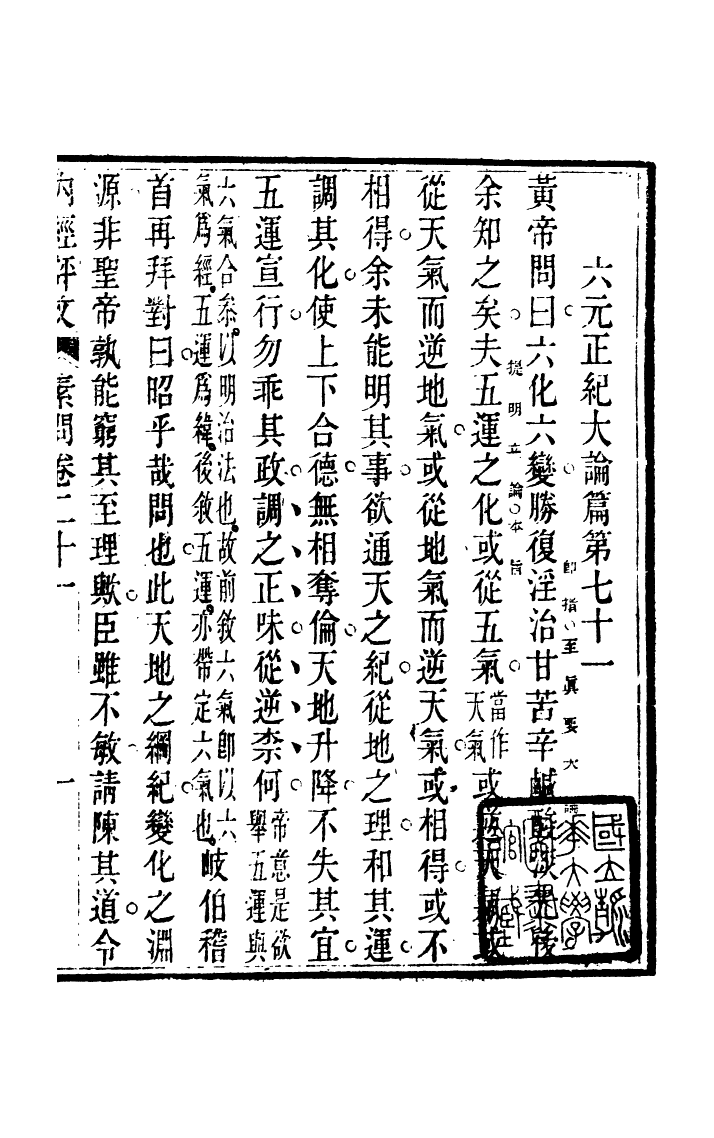 六元正紀大論篇第七十一
即指至眞要大論
黃帝問曰六化六變勝復淫治甘苦辛鹹酸淡先後
提明立論本旨
余知之矣夫五運之化或從五氣當作天氣或逆天氣或
從天氣而逆地氣或從地氣而逆天氣或相得或不
相得余未能明其事欲通天之紀從地之理和其運
調其化使上下合德無相奪倫天地升降不失其宜
五運宣行勿乖其政調之正味從逆柰何帝意是欲舉五運與
六氣合叅以明治法也故前敘六氣卽以六氣爲經五運爲緯後敘五運亦帶定六氣也岐伯稽
首再拜對曰昭乎哉問也此天地之綱紀變化之淵
源非聖帝孰能窮其至理歟臣雖不敏請陳其道令
內經評文 素問卷二十一 一